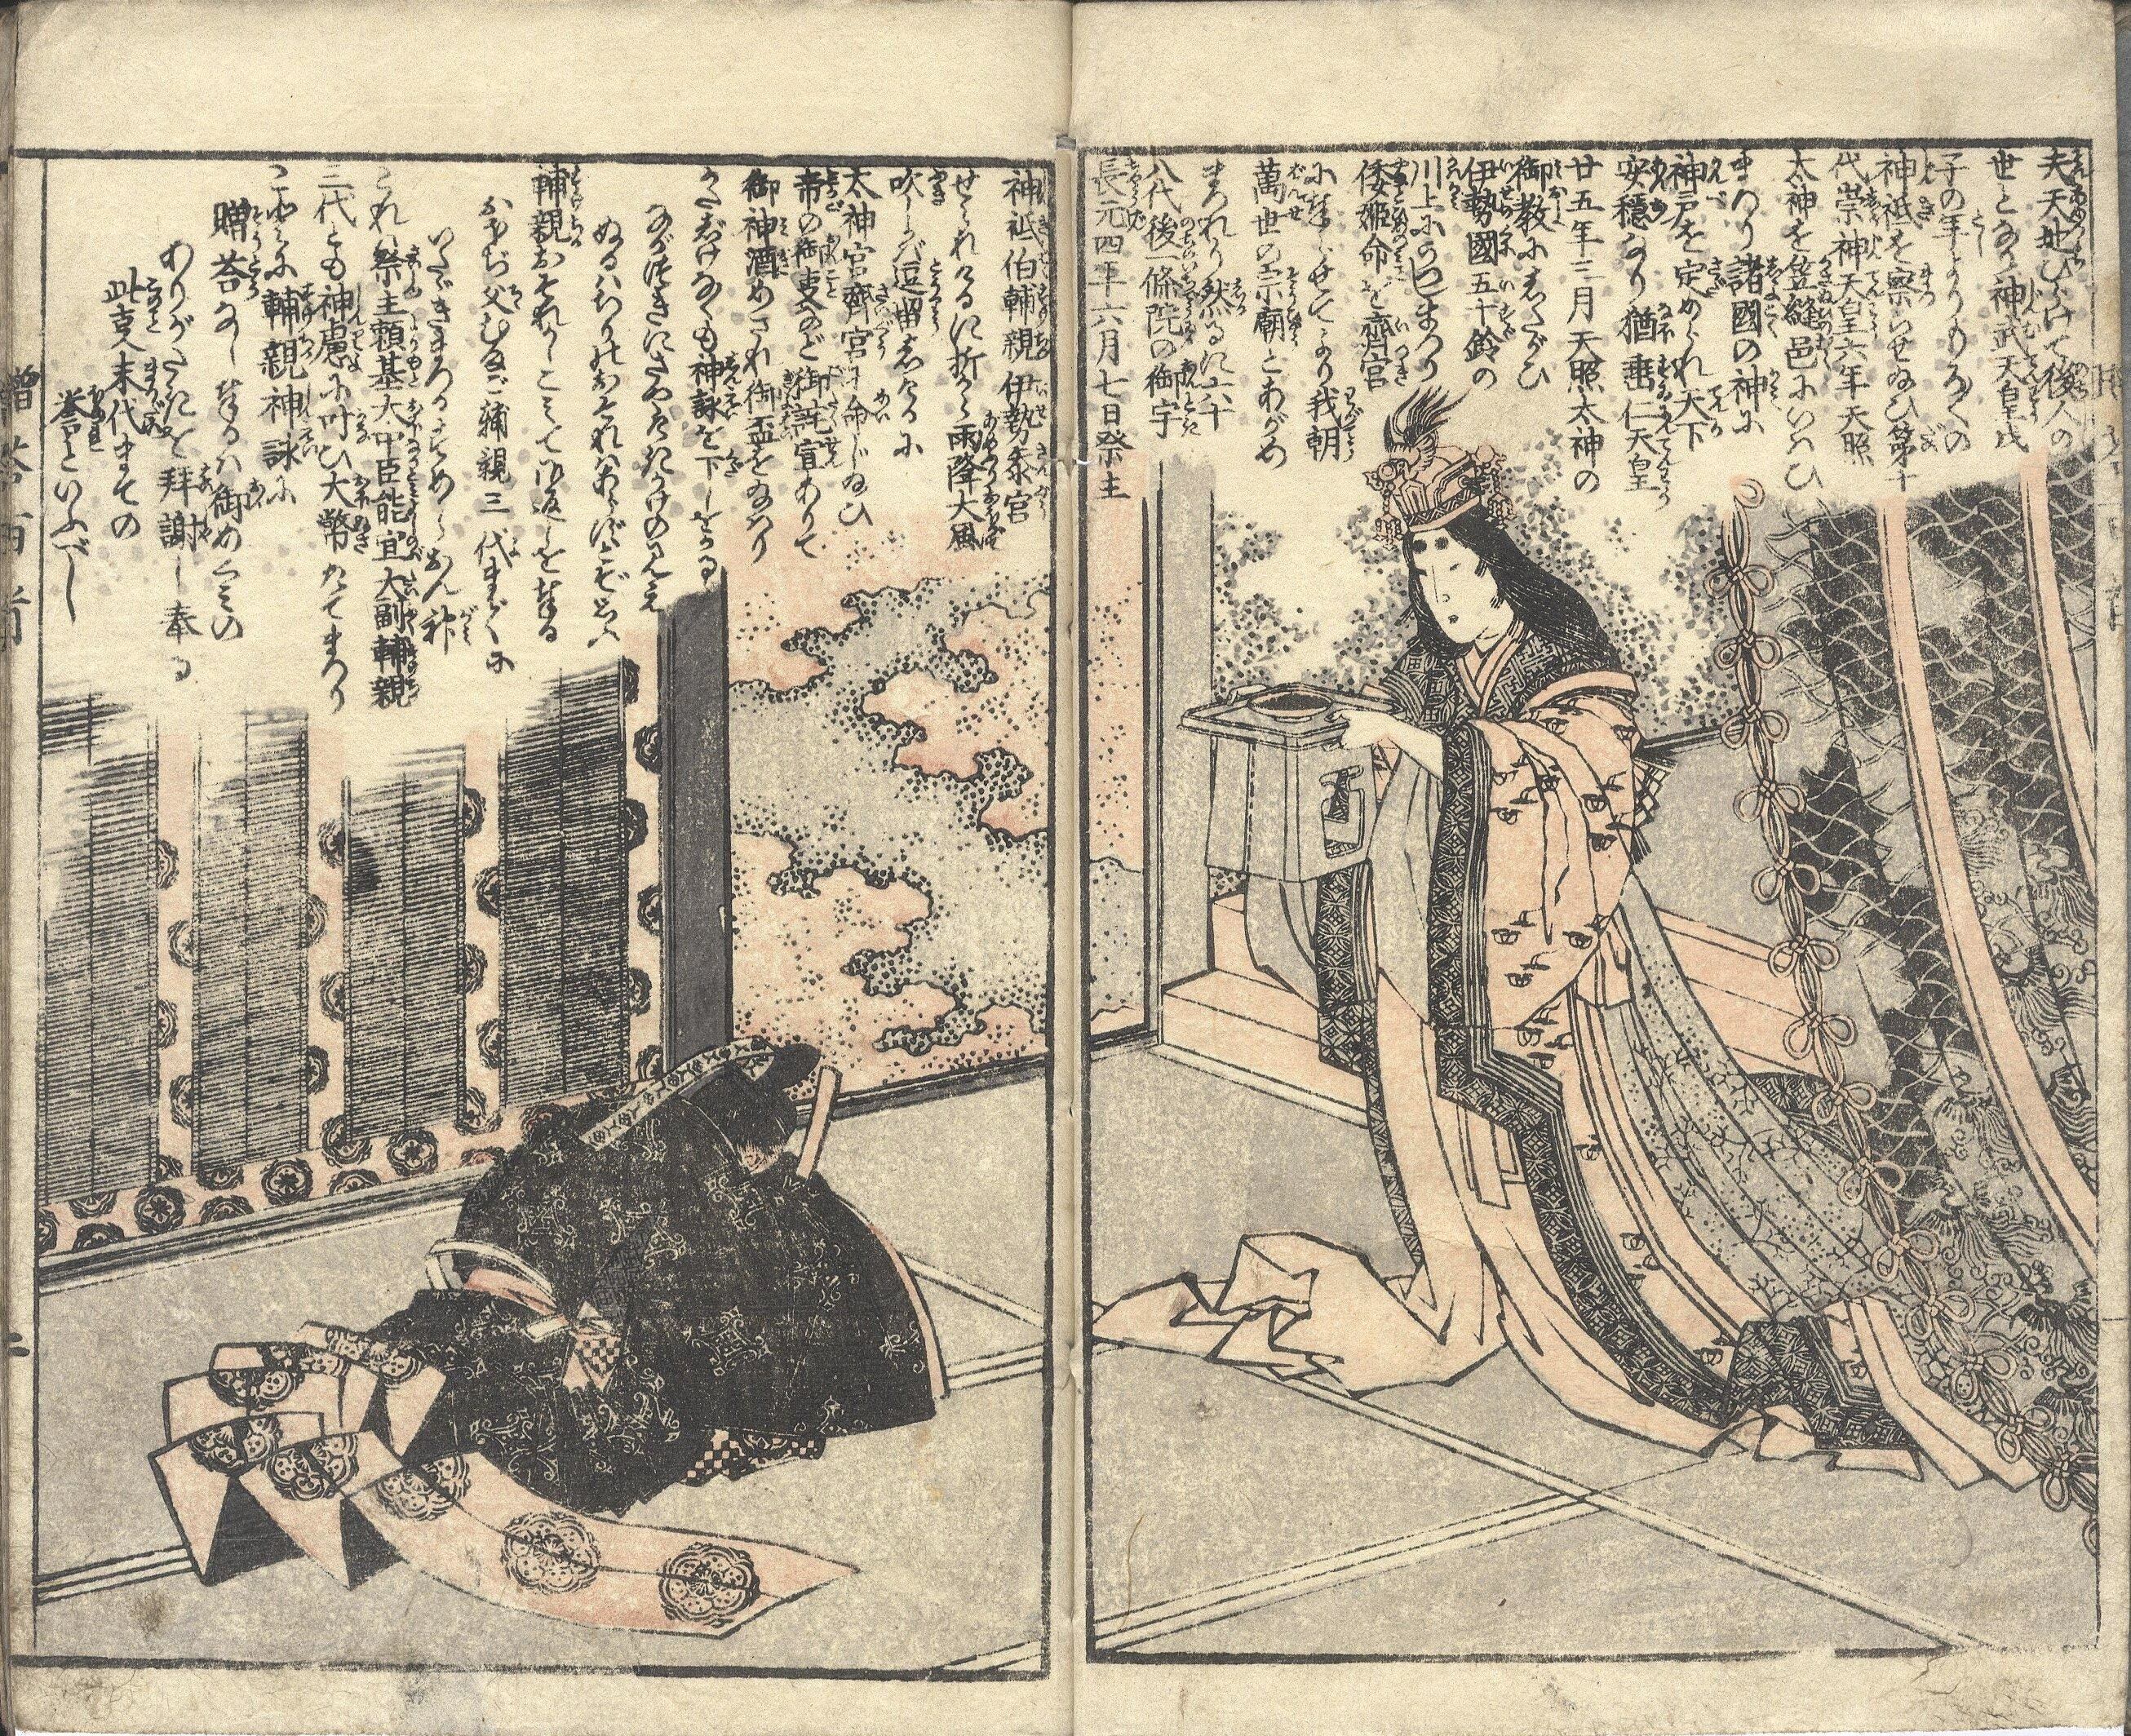 夫天地ひらけて後人の
世となり神武天皇戊
子の年よりもろ〳〵の
神祇を祭らせ給ひ第十
代崇神天皇六年天照
太神を笠縫邑にいはひ
まつり諸國の神に
神戸を定められ天下
安穏なり猶垂仁天皇
廿五年三月天照太神の
御教にしたがひ
伊勢國五十鈴の
川上に
まつり
倭姫命を齋宮
我朝
萬世の宗廟とあがめ
まつれり然るに六十
八代後一條院の御宇
長元四年六月七日祭主
神祇伯輔親伊勢参宮
せられけるに折から雨降大風
吹しかば逗留しけるに
太神宮齋宮に命じ給ひ
帝の御事など御託宣ありて
御神酒めされ御盃を給はり
かたじけなくも神詠を下し給る
さかつきにさやけきかけのみえ
ぬるはちりのおそれはあらずとぞ思ふ
輔親おそれかしこみて御返しを奉る
おほぢ父むまご輔親三代までに
いたゞきまつるすめらおん神
これ祭主頼基大中臣能宣大副輔親
三代とも神慮に叶ひ大幣たてまつり
ことに輔親神詠に
贈答なし奉るは御めぐみの
ありがたきを拝謝し奉る
此真末代までの
誉といふべし
贈答百首
二